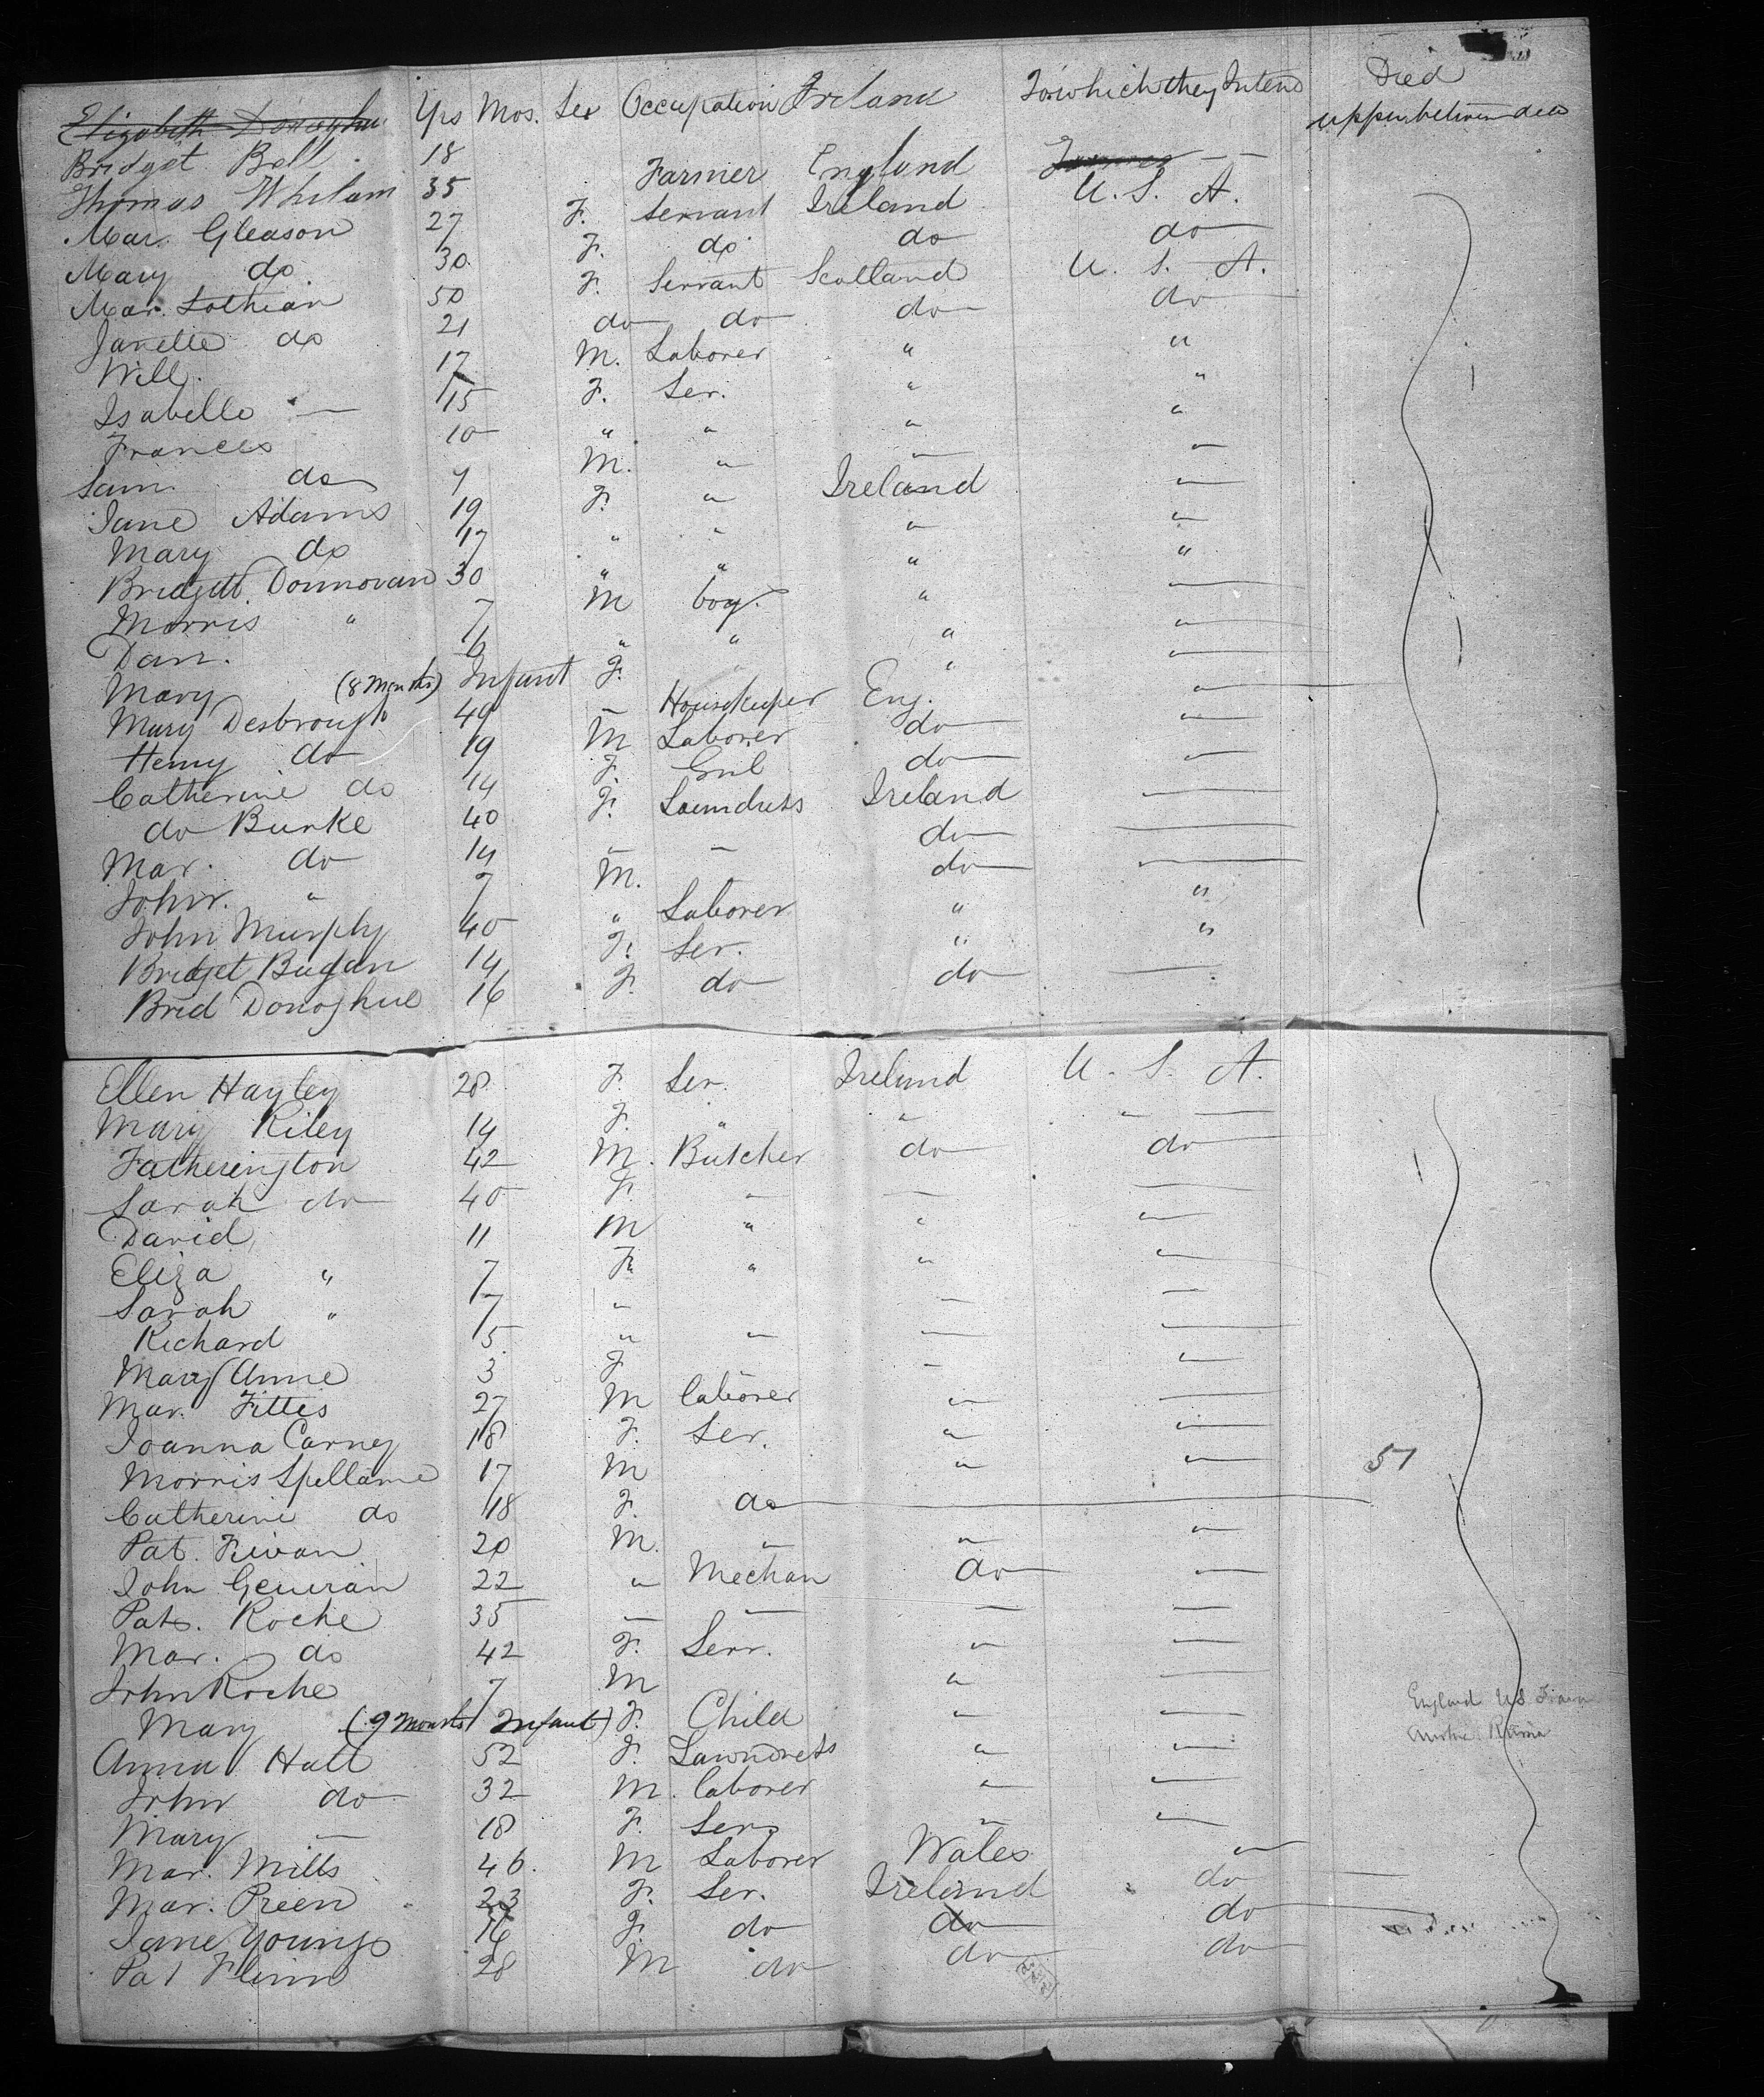 Elizabeth Donaghue Yrs Mos. Sex Occupation Ireland To which they Intend Died
upper between decks
Bridget Bell 18
Thomas Whelam 35 Farmer England U. S. A.
Mar. Gleason 27 F. Servant Ireland do
Mary do 30 F. do do
Mar. Lothian 50 F. Servant Scotland U. S. A.
Janette do 21 do do do do
Will. 17 M. Laborer " "
Isabella — 15 F. Ser. " "
Frances 10 " " " "
Sam. do 9 M. " " "
Jane Adams 19 F. " Ireland "
Mary do 17 " " " "
Bridgett Donnovan 30 " " " "
Morris " 7 M boy. " —
Dan. 6 " " " "
Mary (8 Months) Infant F. " " —
Mary Desbrough 49 — Housekeeper Eng. "
Henry do 19 M Laborer do "
Catherine do 14 F. Girl do "
do Burke 40 F. Laundress Ireland —
Mar. do 14 — — do —
John. " 7 M. do —
John Murphy 40 " Laborer " "
Bridget 14 F. Ser. " "
Brid Donoghue 16 F. do do —
Ellen Hayley 28 F. Ser. Ireland U. S. A.
Mary Riley 14 F. " " "
Fatherington 42 M. Butcher do do
Sarah do 40 F. " — —
David 11 M " " "
Eliza " 7 F. " " "
Sarah " 7 " — —
Richard 5 " " — —
Mary Anne 3 F — "
Mar. Fittis 27 M laborer " —
Joanna Carney 18 F. Ser. " "
Morris Spellame 17 M " " 57
Catherine do 18 F. do
Pat. 20 M. " " "
John 22 " Mechan do "
Pat. Roche 35 — — — —
Mar. do 42 F. Serv. " —
John Roche 7 M " —
Mary (9 Months Infant) F. Child " —
England US
Anna Hall 52 F. Laundress " —
John do 32 M. laborer " —
Mary — 18 F. Ser. " "
Mar. Mills 46. M Laborer Wales "
Mar. Preen 23 F. Ser. Ireland do
Jane Young 16 F. do do do
Pat Flinn 28 M do do do